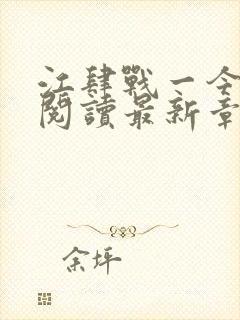 江肆戰一令
閱讀最新章
余坪